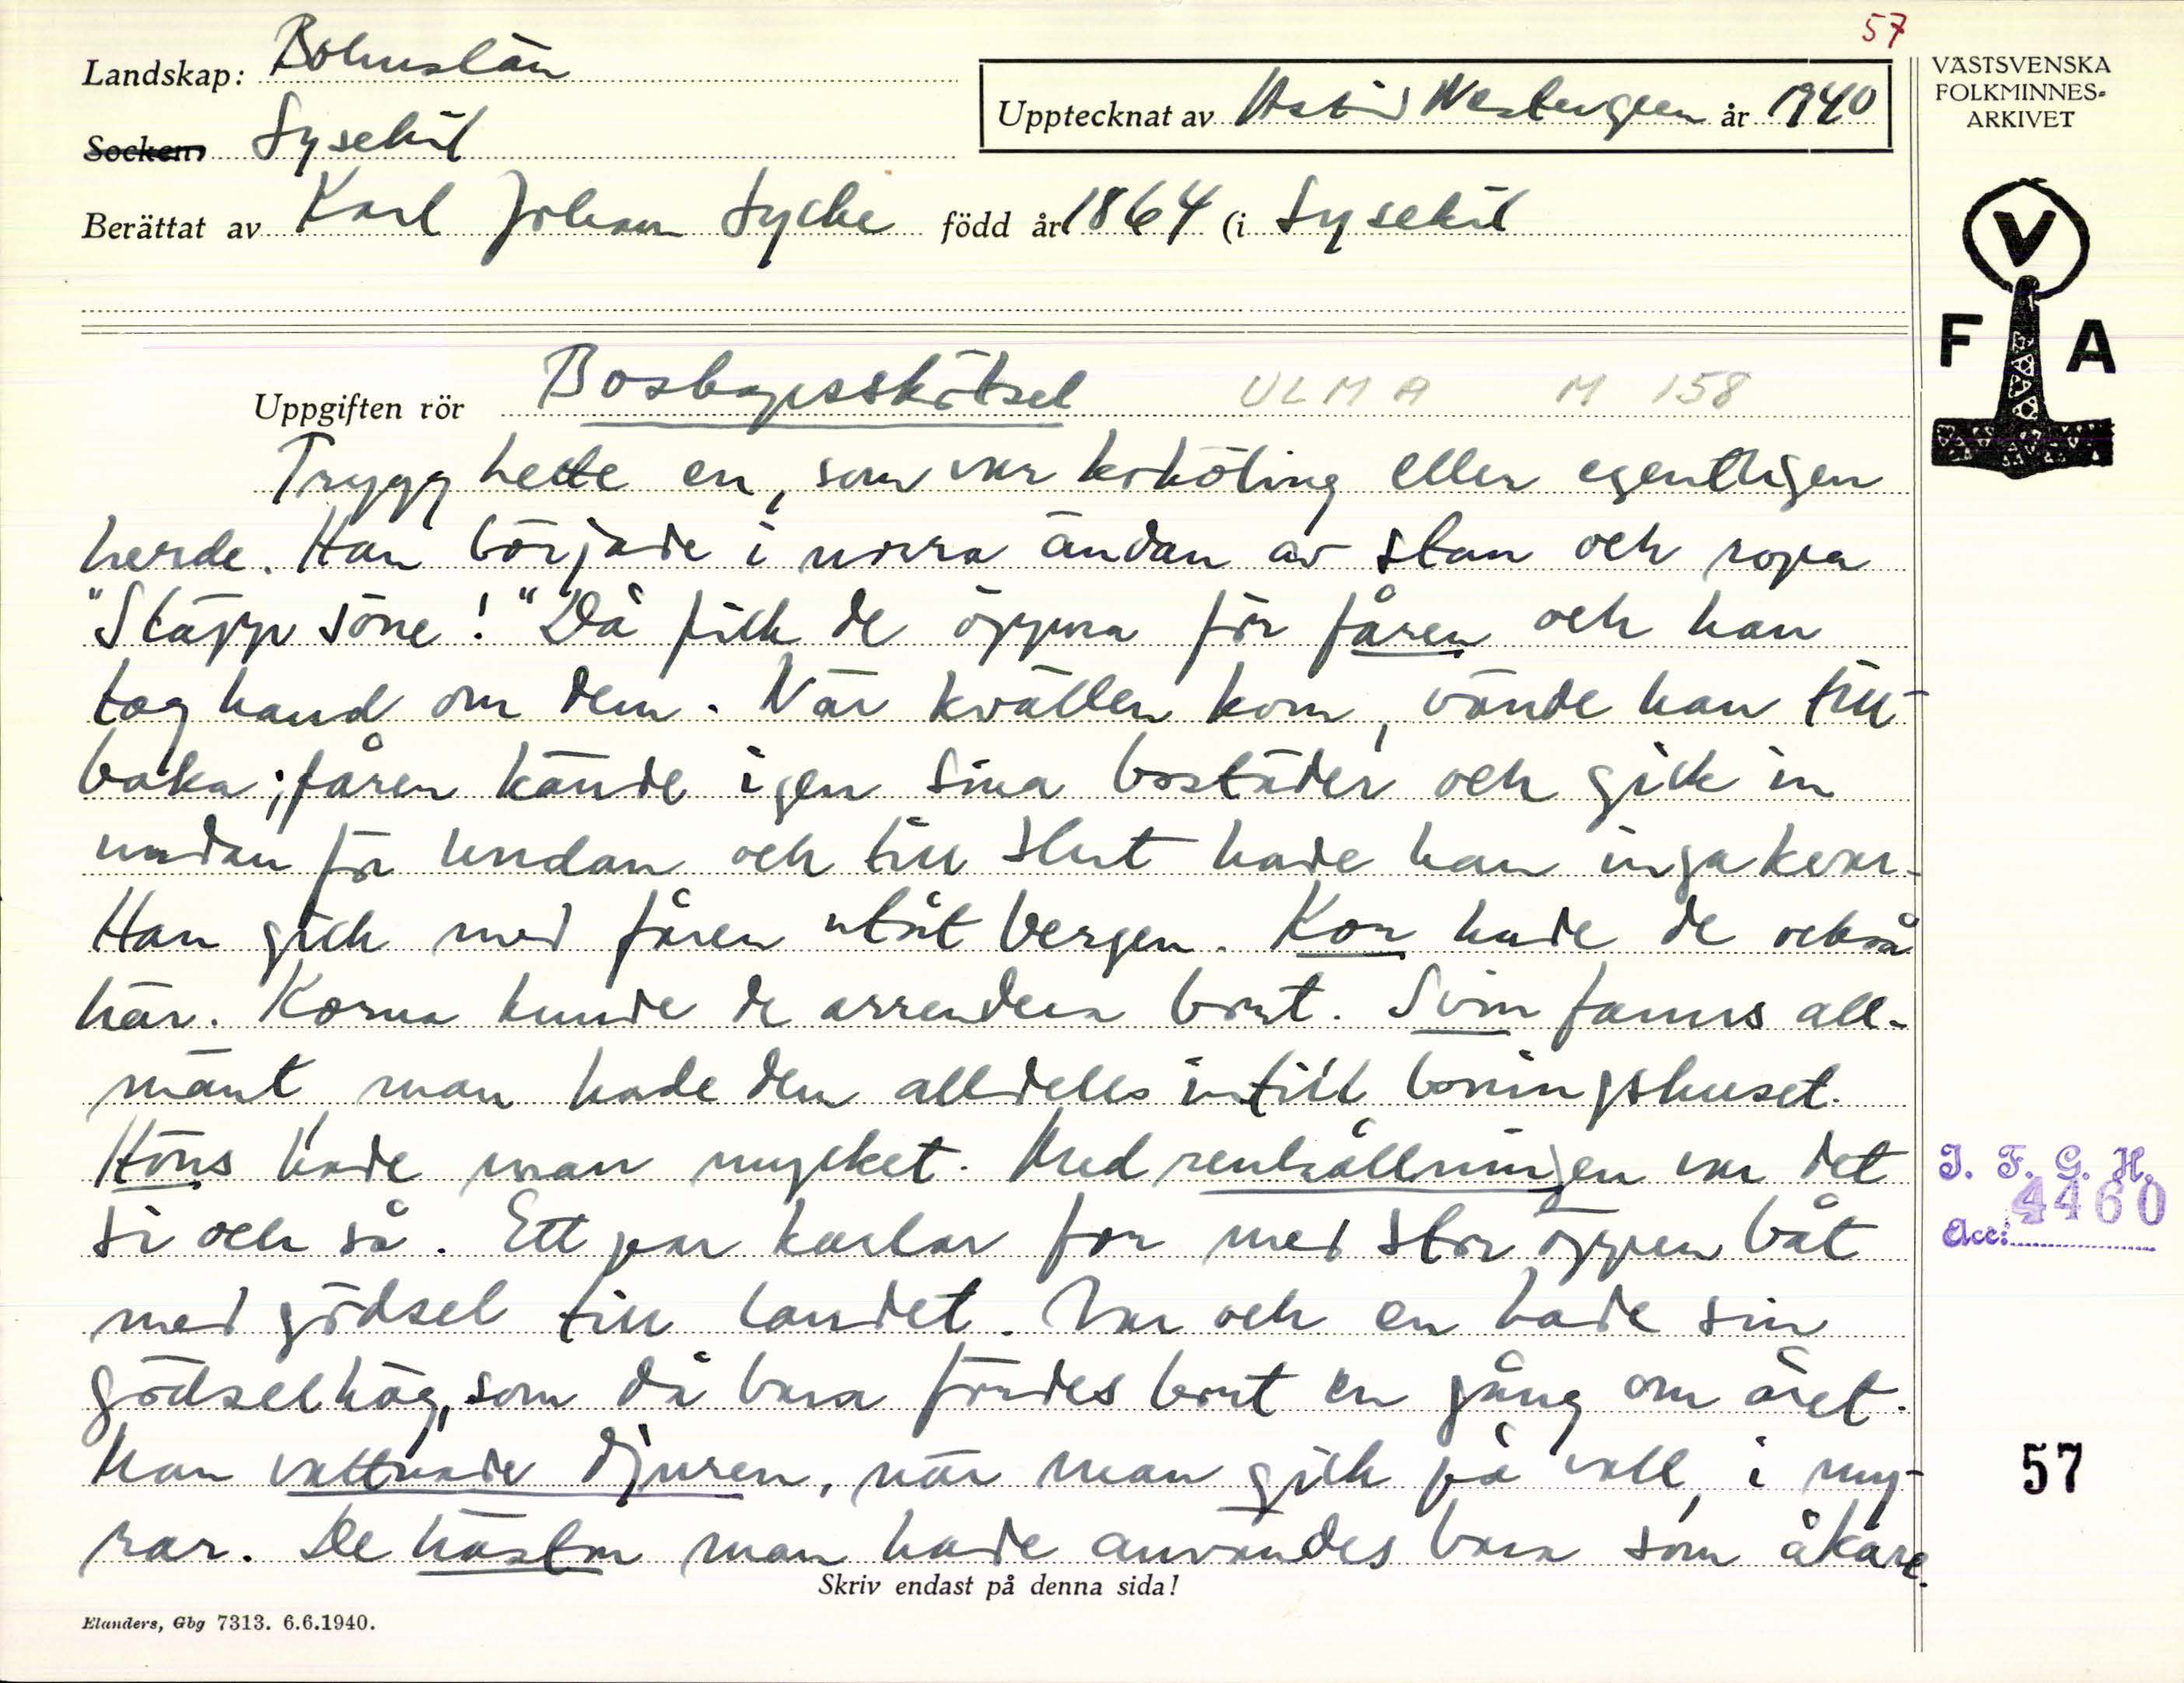 57
Landskap: Bohuslän
Upptecknat av Astrid Westergren år 1940
Socken: Lysekil
Berättat av Karl Johan Lycke född år 1864 (i Lysekil
VÄSTSVENSKA
FOLKMINNES-
ARKIVET
V
F A
Uppgiften rör Boskapsskötsel ULMA M 158
Trygg hette en, som var kohöling eller egentligen
herde. Han började i norra ändan av stan och ropa
"Släpp söne!" Då fick de öppna för fåren och han
tog hand om dem. När kvällen kom, vände han till-
baka; fåren kände igen sina bostäder och gick in
undan för undan och till slut hade han inga kvar.
Han gick med fåren utåt bergen. Kor hade de också
här. Korna kunde de arrendera bort. Svin fanns all-
mänt man hade dem alldeles intill boningshuset.
Höns hade man mycket. Med renhållningen var det
si och så. Ett par karlar for med stor öppen båt
med gödsel till landet. Var och en hade sin
gödselhög, som då bara fördes bort en gång om året.
Man vattnade djuren, när man gick på vall, i my-
rar. De hästar man hade användes bara som åkare.
Skriv endast på denna sida!
Elanders, Gbg 7313. 6.6.1940.
I. F. G. H.
4460
Acc:
57